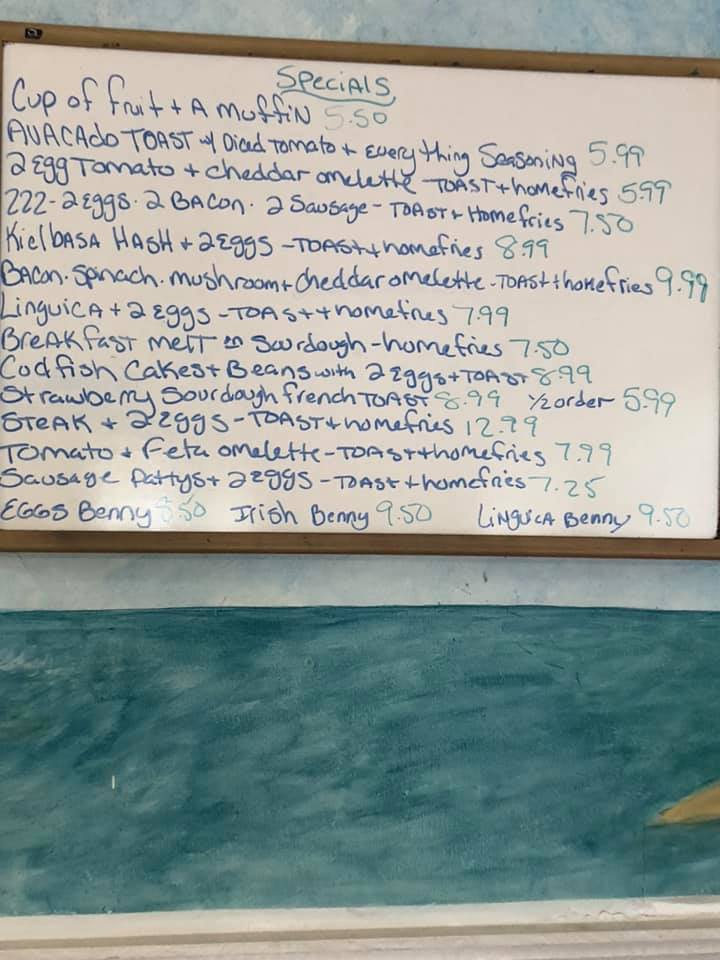 Specials
Cup of fruit + A muffin 5.50
AVACAdo TOAST w/ Diced Tomato + Everything Seasoning 5.99
2 Egg Tomato + cheddar omelette - TOAST + homefries 5.99
222 - 2 Eggs · 2 BACon · 2 Sausage - TOAST + Homefries 7.50
KielbASA HASH + 2 Eggs - TOAST + homefries 8.99
BAcon · Spinach · mushroom + Cheddar omelette - TOAST + homefries 9.99
LinguicA + 2 Eggs - TOAST + homefries 7.99
BreAKfAST melT on Sourdough - homefries 7.50
Codfish Cakes + Beans with 2 Eggs + TOAST 8.99
Strawberry Sourdough french TOAST 8.99 1/2 order 5.99
STEAK + 2 Eggs - TOAST + homefries 12.99
Tomato + Feta omelette - TOAST + homefries 7.99
Sausage Pattys + 2 Eggs - TOAST + homefries 7.25
EGGS Benny 8.50 Irish Benny 9.50 LinguicA Benny 9.50